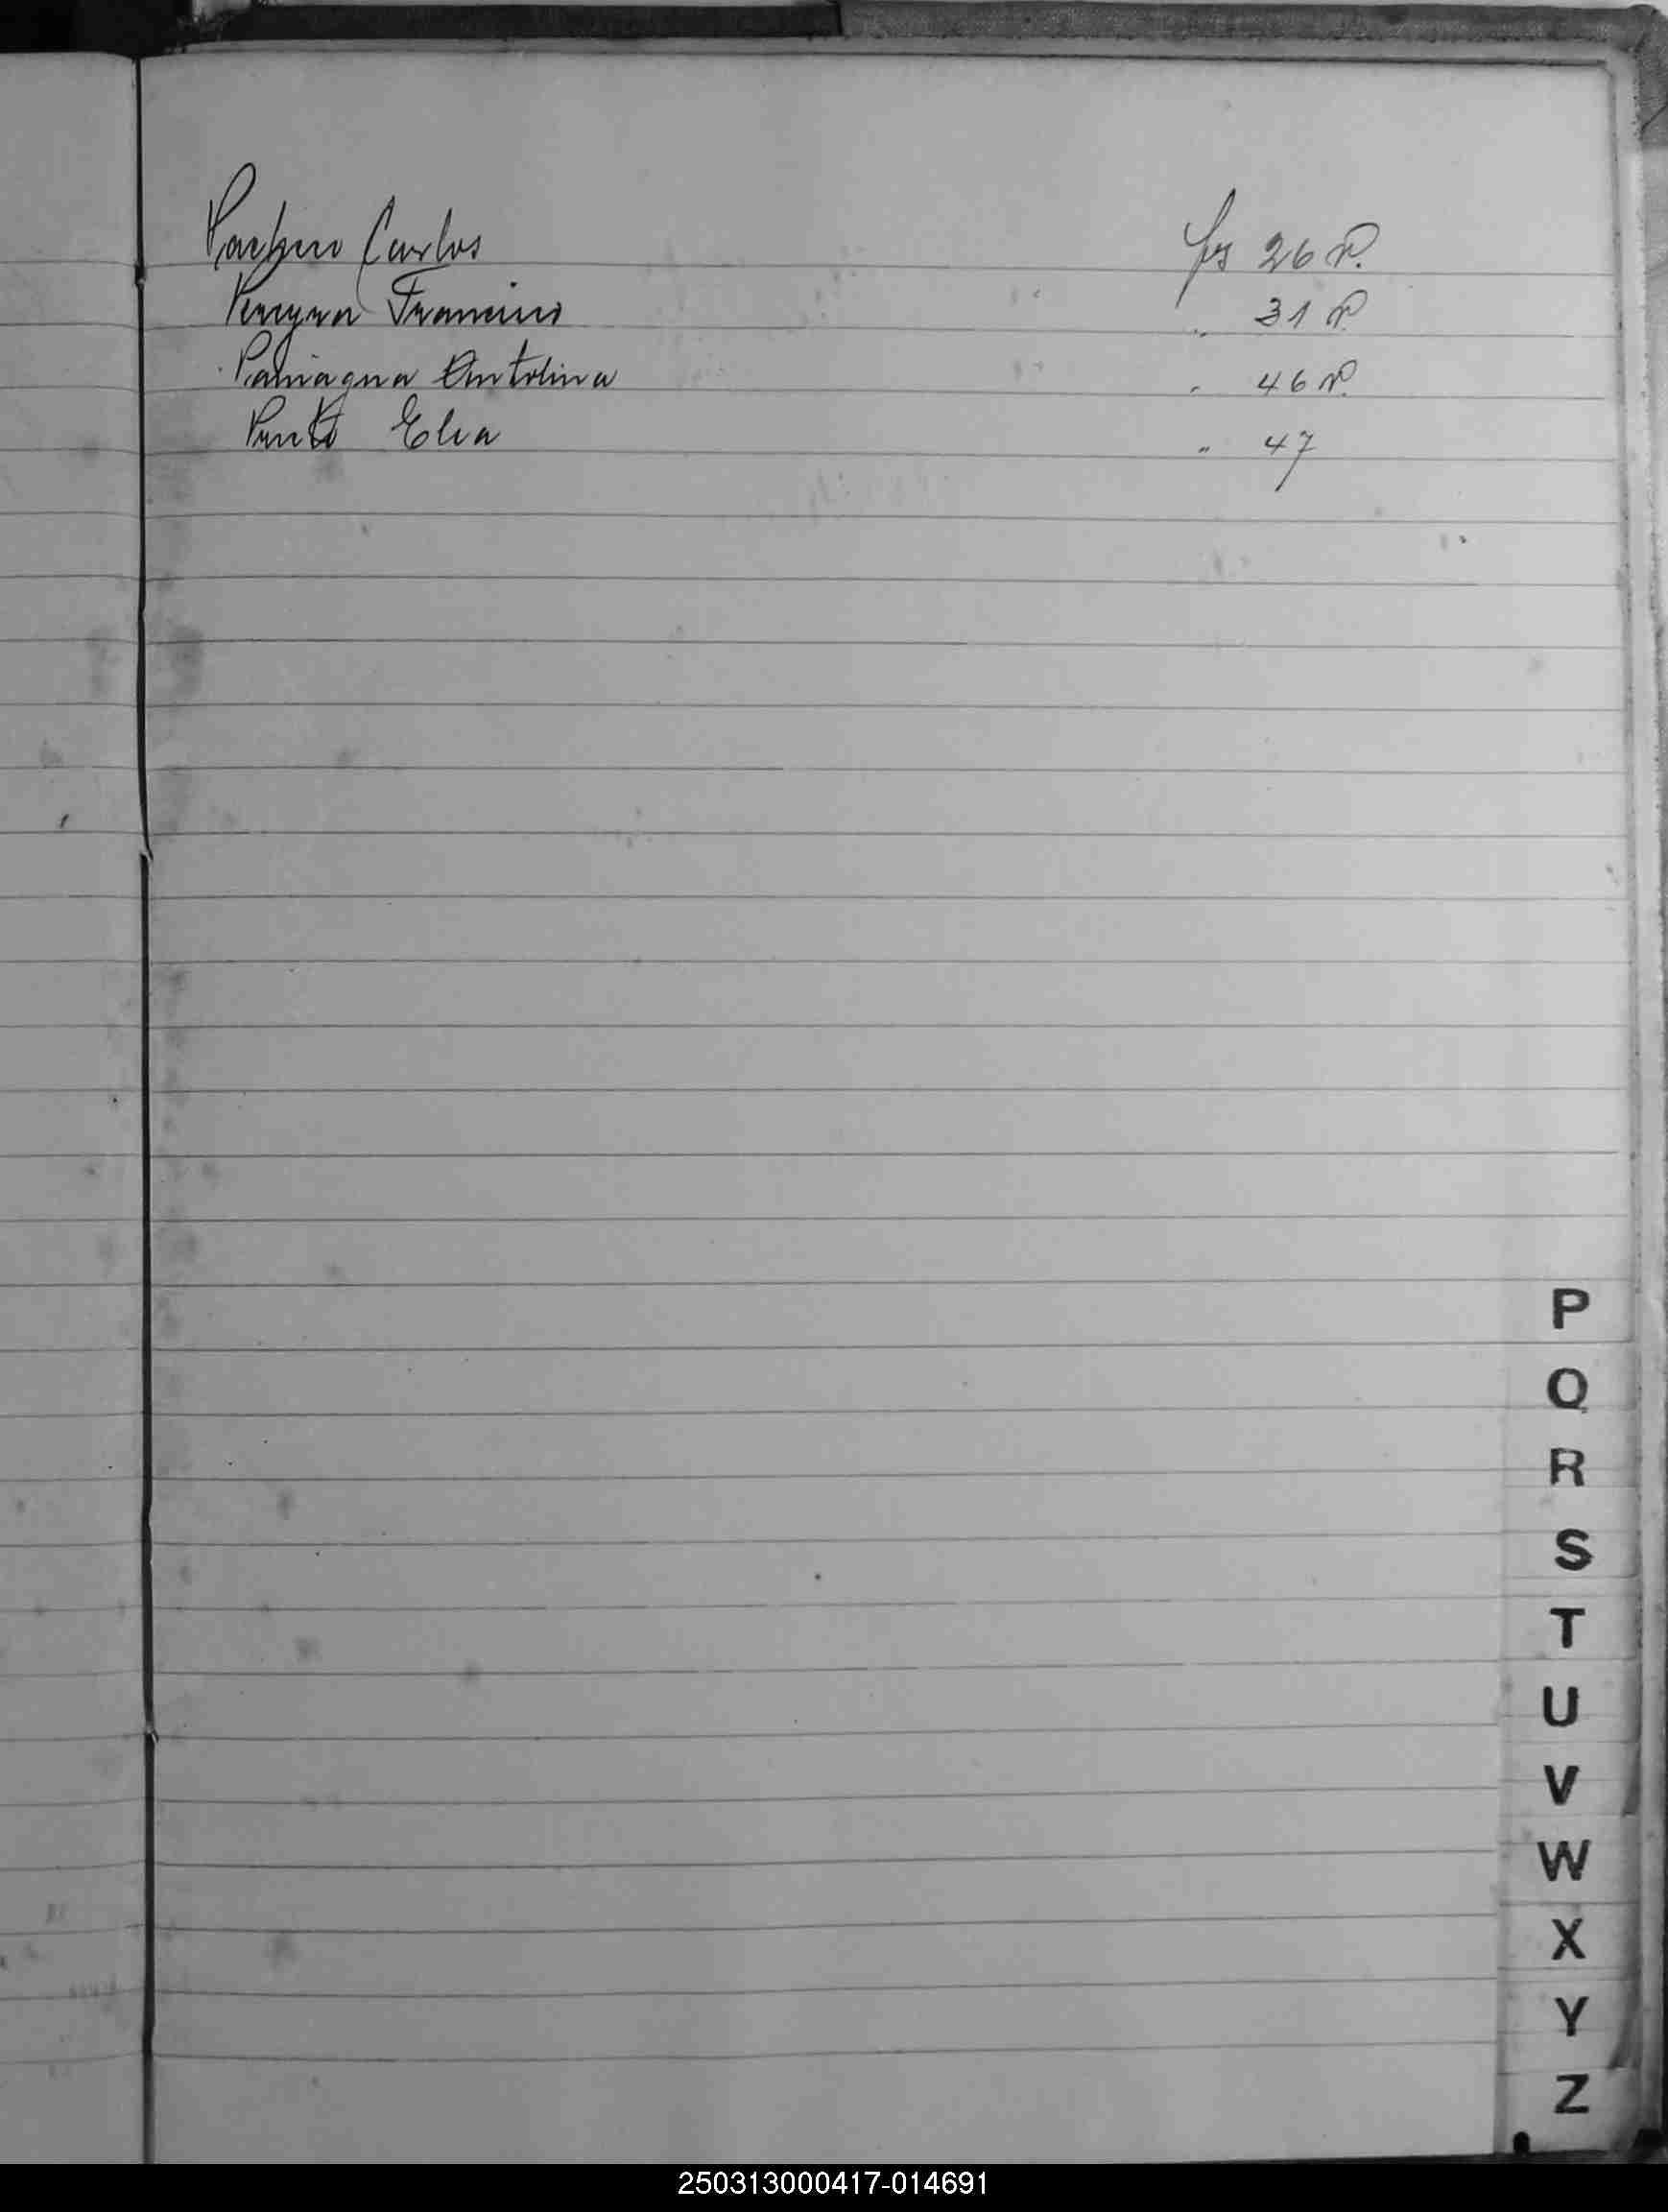 Pacheco Carlos fs 26 v.
Pereyra Francisco " 31 v
Paniagua Antolina " 46 v.
Elva " 47
P
Q
R
S
T
U
V
W
X
Y
Z
250313000417-014691